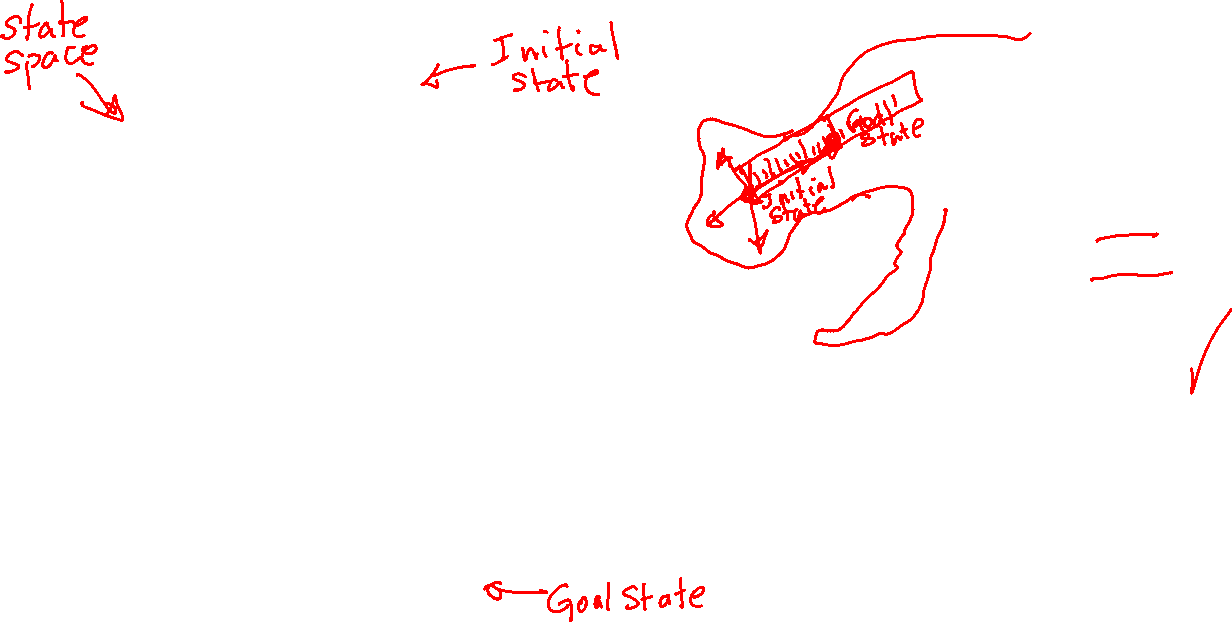 state
space
Initial
state
Goal
state
Initial
state
=
Goal state